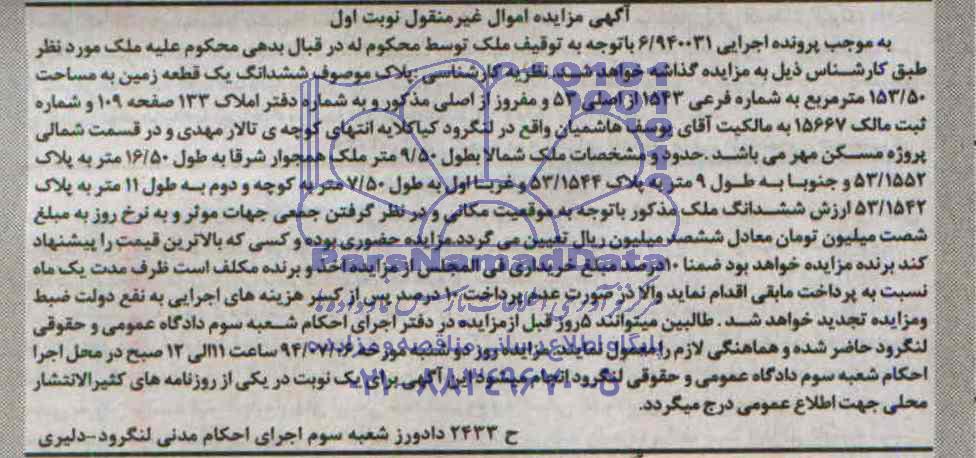 آگهی مزایده اموال غیرمنقول نوبت اول
به موجب پرونده اجرایی ۶/۹۴۰۰۳۱ باتوجه به توقیف ملک توسط محکوم له در قبال بدهی محکوم علیه ملک مورد نظر
طبق کارشناس ذیل به مزایده گذاشته خواهد شد. نظریه کارشناسی :پلاک موصوف ششدانگ یک قطعه زمین به مساحت
۱۵۳/۵۰ مترمربع به شماره فرعی ۱۵۴۳ از اصلی ۵۳ و مفروز از اصلی مذکور و به شماره دفتر املاک ۱۳۳ صفحه ۱۰۹ و شماره
ثبت مالک ۱۵۶۶۷ به مالکیت آقای یوسف هاشمیان واقع در لنگرود کیاکلایه انتهای کوچه ی تالار مهدی و در قسمت شمالی
پروژه مسکن مهر می باشد .حدود و مشخصات ملک شمالا بطول ۹/۵۰ متر ملک همجوار شرقا به طول ۱۶/۵۰ متر به پلاک
۵۳/۱۵۵۲ و جنوبا به طول ۹ متر به پلاک ۵۳/۱۵۴۴ و غربا اول به طول ۷/۵۰ متر به کوچه و دوم به طول ۱۱ متر به پلاک
۵۳/۱۵۴۲ ارزش ششدانگ ملک مذکور باتوجه به موقعیت مکانی و در نظر گرفتن جمعی جهات موثر و به نرخ روز به مبلغ
شصت میلیون تومان معادل ششصد میلیون ریال تعیین می گردد.مزایده حضوری بوده و کسی که بالاترین قیمت را پیشنهاد
کند برنده مزایده خواهد بود ضمنا ۱۰درصد مبلغ خریداری فی المجلس از مزایده اخذ و برنده مکلف است ظرف مدت یک ماه
نسبت به پرداخت مابقی اقدام نماید والا در صورت عدم پرداخت ۱۰ درصد پس از کسر هزینه های اجرایی به نفع دولت ضبط
ومزایده تجدید خواهد شد . طالبین میتوانند ۵روز قبل ازمزایده در دفتر اجرای احکام شعبه سوم دادگاه عمومی و حقوقی
لنگرود حاضر شده و هماهنگی لازم را معمول نمایند.مزایده روز دو شنبه مورخه ۹۴/۰۷/۰۶ ساعت ۱۱الی ۱۲ صبح در محل اجرا
احکام شعبه سوم دادگاه عمومی و حقوقی لنگرود انجام میشود.این آگهی برای یک نوبت در یکی از روزنامه های کثیرالانتشار
محلی جهت اطلاع عمومی درج میگردد.
ح ۲۴۳۳ دادورز شعبه سوم اجرای احکام مدنی لنگرود-دلیری
ParsNamadData
پایگاه اطلاع رسانی مناقصه و مزایده
۰۲۱-۸۸۳۴۹۶۷۰